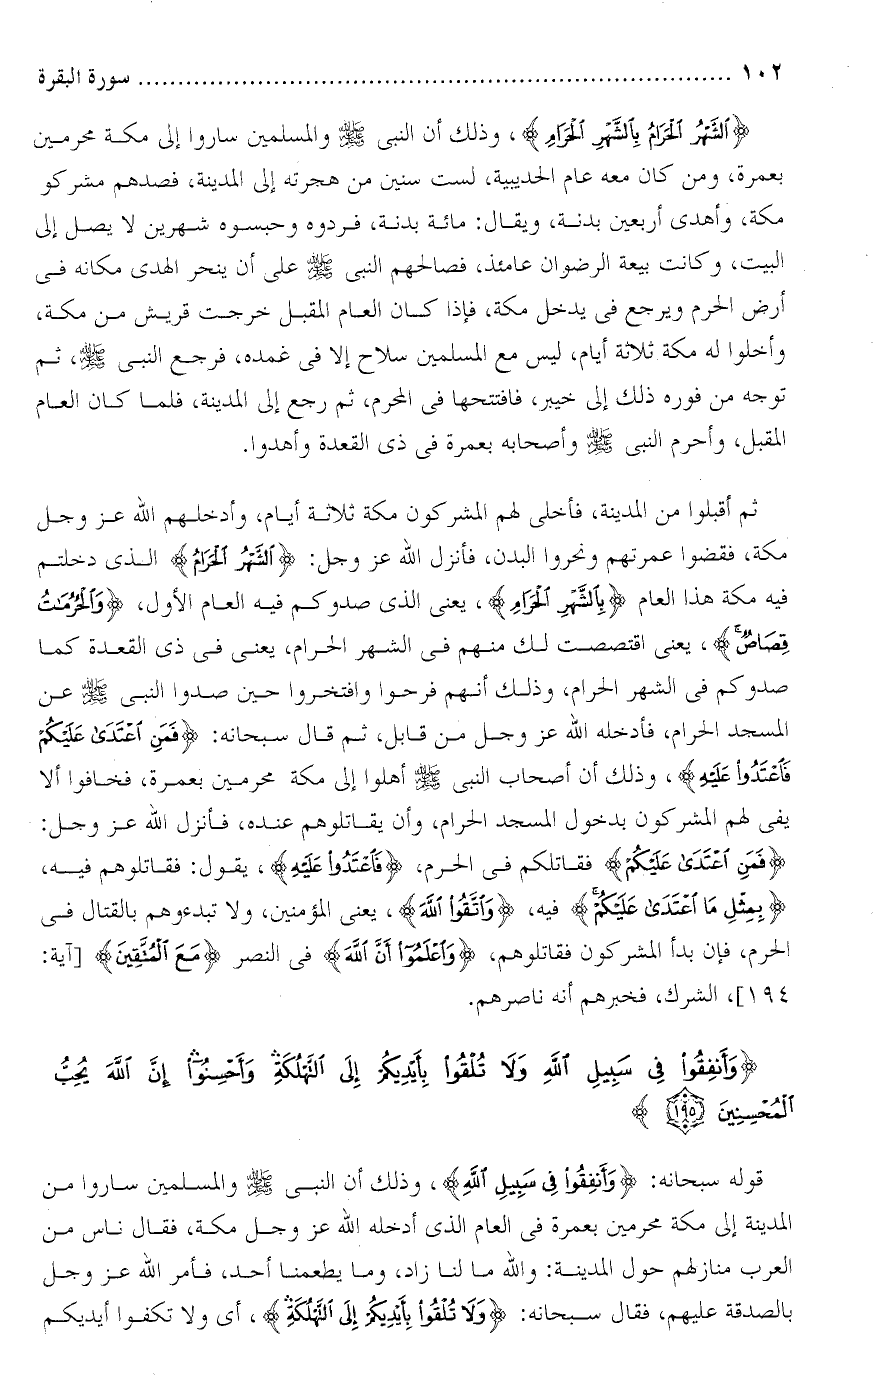 ١٠٢ ........................................................................... سورة البقرة
﴿ٱلشَّهْرُ ٱلْحَرَامُ بِٱلشَّهْرِ ٱلْحَرَامِ﴾، وذلك أن النبى ﷺ والمسلمين ساروا إلى مكة محرمين
بعمرة، ومن كان معه عام الحديبية، لست سنين من هجرته إلى المدينة، فصدهم مشركو
مكة، وأهدى أربعين بدنة، ويقال: مائة بدنة، فردوه وحبسوه شهرين لا يصل إلى
البيت، وكانت بيعة الرضوان عامئذ، فصالحهم النبى ﷺ على أن ينحر الهدى مكانه فى
أرض الحرم ويرجع فى يدخل مكة، فإذا كان العام المقبل خرجت قريش من مكة،
وأخلوا له مكة ثلاثة أيام، ليس مع المسلمين سلاح إلا فى غمده، فرجع النبى ﷺ، ثم
توجه من فوره ذلك إلى خيبر، فافتتحها فى المحرم، ثم رجع إلى المدينة، فلما كان العام
المقبل، وأحرم النبى ﷺ وأصحابه بعمرة فى ذى القعدة وأهدوا.
ثم أقبلوا من المدينة، فأخلى لهم المشركون مكة ثلاثة أيام، وأدخلهم الله عز وجل
مكة، فقضوا عمرتهم ونحروا البدن، فأنزل الله عز وجل: ﴿ٱلشَّهْرُ ٱلْحَرَامُ﴾ الذى دخلتم
فيه مكة هذا العام ﴿بِٱلشَّهْرِ ٱلْحَرَامِ﴾، يعنى الذى صدوكم فيه العام الأول، ﴿وَٱلْحُرُمَـٰتُ
قِصَاصٌ ۚ﴾، يعنى اقتصصت لك منهم فى الشهر الحرام، يعنى فى ذى القعدة كما
صدوكم فى الشهر الحرام، وذلك أنهم فرحوا وافتخروا حين صدوا النبى ﷺ عن
المسجد الحرام، فأدخله الله عز وجل من قابل، ثم قال سبحانه: ﴿فَمَنِ ٱعْتَدَىٰ عَلَيْكُمْ
فَٱعْتَدُوا۟ عَلَيْهِ﴾، وذلك أن أصحاب النبى ﷺ أهلوا إلى مكة محرمين بعمرة، فخافوا ألا
يفى لهم المشركون بدخول المسجد الحرام، وأن يقاتلوهم عنده، فأنزل الله عز وجل:
﴿فَمَنِ ٱعْتَدَىٰ عَلَيْكُمْ﴾ فقاتلكم فى الحرم، ﴿فَٱعْتَدُوا۟ عَلَيْهِ﴾، يقول: فقاتلوهم فيه،
﴿بِمِثْلِ مَا ٱعْتَدَىٰ عَلَيْكُمْ ۚ﴾ فيه، ﴿وَٱتَّقُوا۟ ٱللَّهَ﴾، يعنى المؤمنين، ولا تبدءوهم بالقتال فى
الحرم، فإن بدأ المشركون فقاتلوهم، ﴿وَٱعْلَمُوٓا۟ أَنَّ ٱللَّهَ﴾ فى النصر ﴿مَعَ ٱلْمُتَّقِينَ﴾ [آية:
١٩٤]، الشرك، فخبرهم أنه ناصرهم.
﴿وَأَنفِقُوا۟ فِى سَبِيلِ ٱللَّهِ وَلَا تُلْقُوا۟ بِأَيْدِيكُمْ إِلَى ٱلتَّهْلُكَةِ ۛ وَأَحْسِنُوٓا۟ ۛ إِنَّ ٱللَّهَ يُحِبُّ
ٱلْمُحْسِنِينَ ١٩٥﴾
قوله سبحانه: ﴿وَأَنفِقُوا۟ فِى سَبِيلِ ٱللَّهِ﴾، وذلك أن النبى ﷺ والمسلمين ساروا من
المدينة إلى مكة محرمين بعمرة فى العام الذى أدخله الله عز وجل مكة، فقال ناس من
العرب منازلهم حول المدينة: والله ما لنا زاد، وما يطعمنا أحد، فأمر الله عز وجل
بالصدقة عليهم، فقال سبحانه: ﴿وَلَا تُلْقُوا۟ بِأَيْدِيكُمْ إِلَى ٱلتَّهْلُكَةِ ۛ﴾، أى ولا تكفوا أيديكم